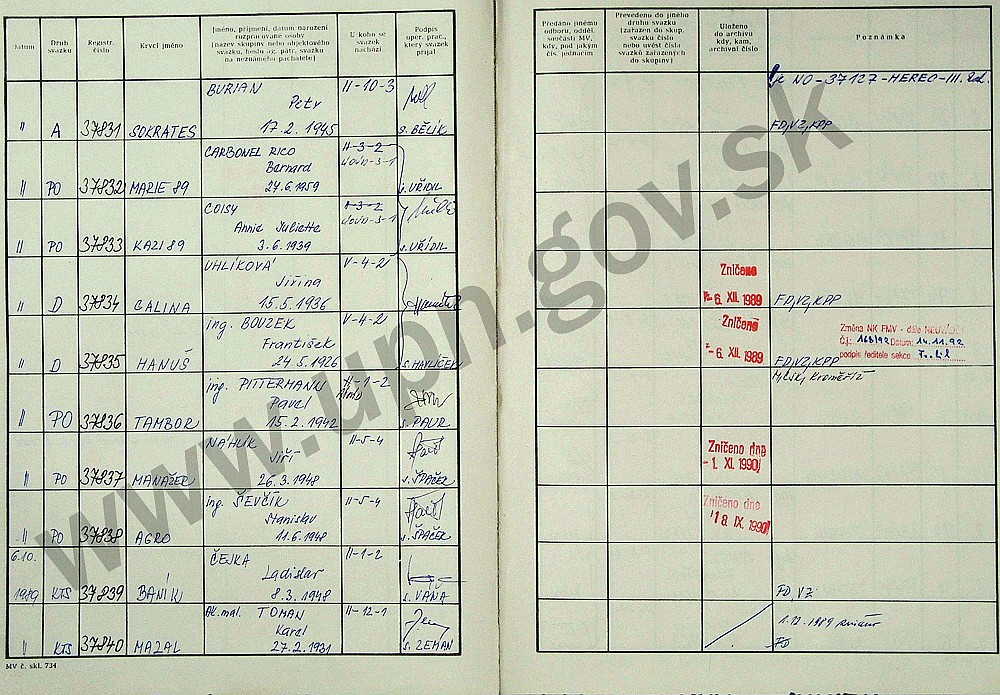 Datum
Druh svazku
Registr. číslo
Krycí jméno
Jméno, příjmení, datum narození
rozpracované osoby
(název skupiny nebo objektového
svazku, heslo ag. pátr. svazku
na neznámého pachatele)
U koho se
svazek
nachází
Podpis
oper. prac.,
který svazek
přijal
Předáno jinému
odboru, odděl.
součásti MV,
kdy, pod jakým
čís. jednacím
Převedeno do jiného
druhu svazku
(zařazen do skup.
svazku číslo
nebo uvést čísla
svazků zařazených
do skupiny)
Uloženo
do archivu
kdy, kam,
archivní číslo
Poznámka
BURIAN II-10-3 je NO-37127-MEREC-III.
Petr
" A 37831 SOKRATES 17.2.1945 s. BĚLÍK FD, VZ, KPP
CARBONEL RICO II-3-2
Bernard
" PO 37832 MARIE 89 24.6.1959 s. VŘÍDIL
COISY II-3-2
Annie Juliette
" PO 37833 KAZI 89 3.6.1939 s. VŘÍDIL
UHLÍKOVÁ V-4-2
Jiřina Zničeno
" D 37834 GALINA 15.5.1936 -6. XII. 1989 FD, VZ, KPP
ing. BOUZEK V-4-2 Zničeno Změna NK FMV - dále
František Č.j.: 168/92 Datum: 14.11.92
" D 37835 HANUŠ 24.5.1926 s. HAVLÍČEK -6. XII. 1989 FD, VZ, KPP podpis ředitele sekce
ing. PITTERMANN II-1-2 Kroměříž
Pavel
" PO 37836 TAMBOR 15.2.1942 s. PAUR
NÁHLÍK II-5-4 Zničeno dne
Jiří -1. XI. 1990
" PO 37837 MANAŽER 26.3.1948 s. ŠPAČEK
ing. ŠEVČÍK II-5-4 Zničeno dne
Stanislav 18. IX. 1990
" PO 37838 AGRO 11.6.1948 s. ŠPAČEK
6.10. ČEJKA II-1-2
Ladislav
1989 KTS 37839 BANÍK 8.3.1948 s. VÁŇA FD VZ
Ak. mal. TOMAN II-12-1 1.12.1989
Karel
" KTS 37840 MAZAL 27.2.1931 s. ZEMAN FD
MV č. skl. 734
www.upn.gov.sk